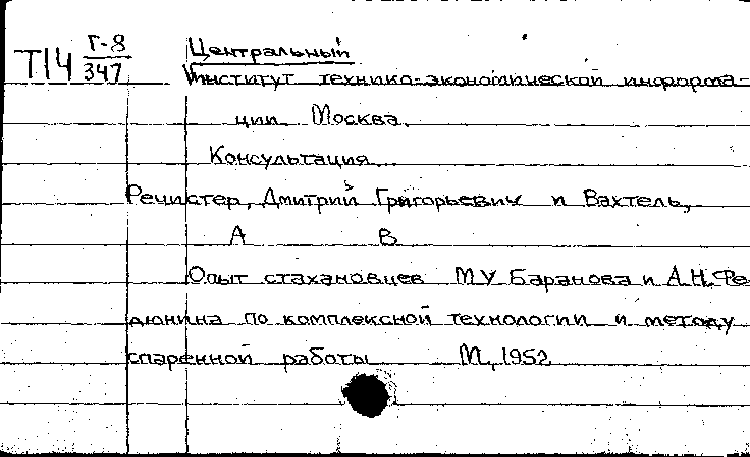 Т14 Г-8
347
Центральный
Институт технико-экономической информа-
ции. Москва.
Консультация...
Речистер, Дмитрий Григорьевич и Вахтель,
А В
Опыт стахановцев М.У. Баранова и А.Н. Фе
дюнина по комплексной технологии и методу
спаренной работы М., 1952